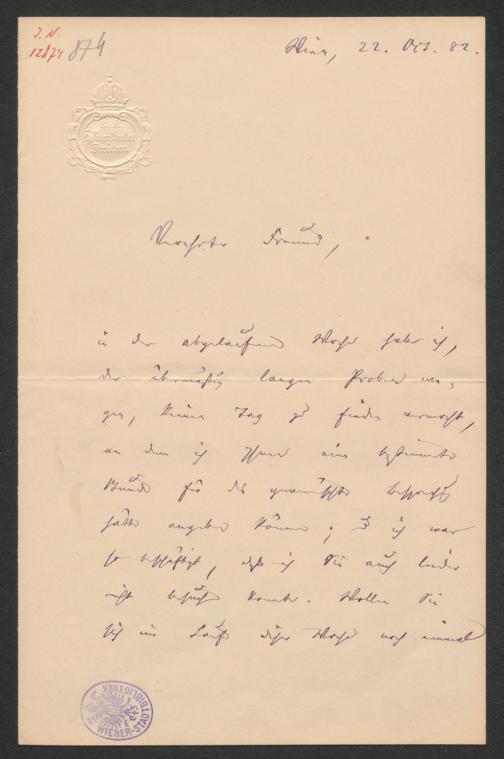 I. N.
12874 874
Wien, 22. Oct. 82.
Verehrter Freund,
in der abgelaufenen Woche habe ich,
der übermäßig langen Proben we-
gen, keinen Tag zu finden vermocht,
an dem ich Ihnen eine bestimmte
Stunde für die gewünschte
hätte angeben können; ich war
so beschäftigt, daß ich Sie auch leider
nicht besuchen konnte. Wollen Sie
sich im Laufe dieser Woche noch einmal
WIENER-STADTBIBLIOTHEK